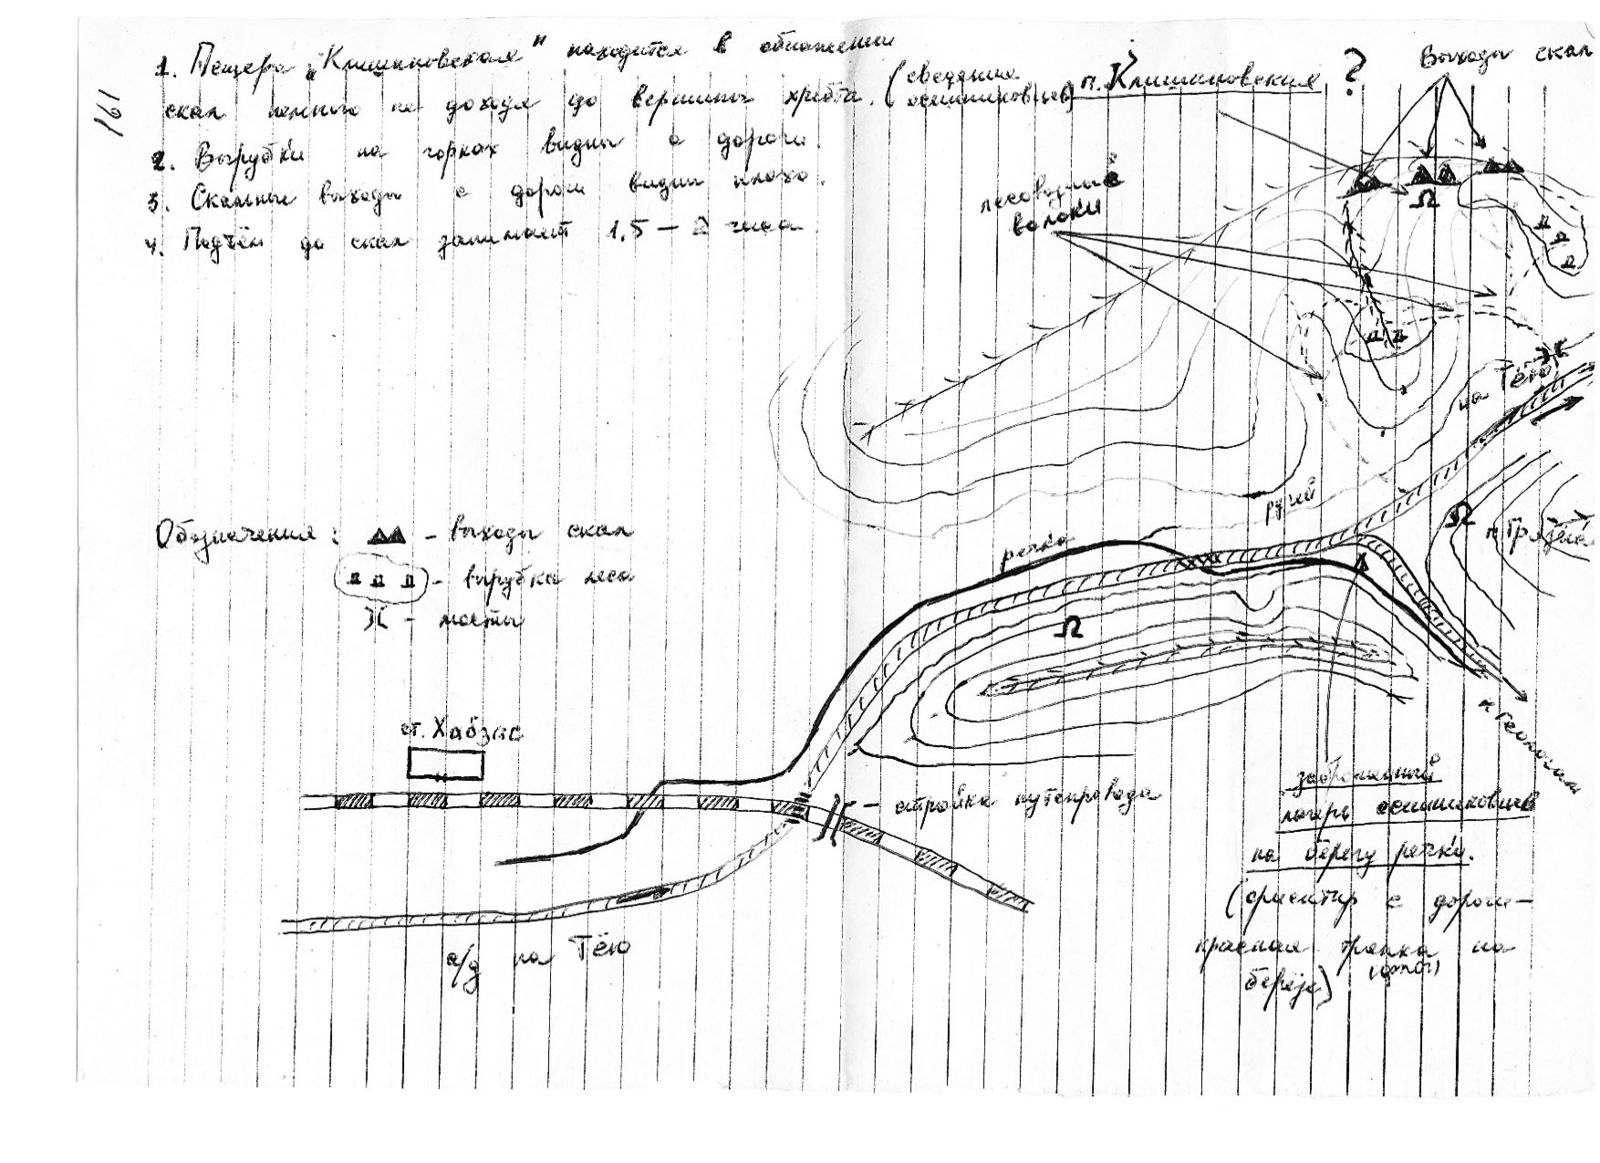 161
1. Пещера „Клишиновская" находится в обнажении
скал немного не доходя до вершины хребта. (сведения
осинниковцев)
2. Вырубки на горках видны с дороги.
3. Скальные выходы с дороги видны плохо.
4. Подъём до скал занимает 1,5 – 2 часа.
п. Клишиновская ?
Выходы скал
лесовозные
волоки
на Тёю
ручей
речка
Обозначения: – выходы скал
– вырубка леса
– мосты
ст. Хабзас
– стройка путепровода
а/д на Тёю
к Геологам
заброшенный
лагерь осинниковцев
на берегу речки.
(ориентир с дороги –
красная тряпка на
берегу)